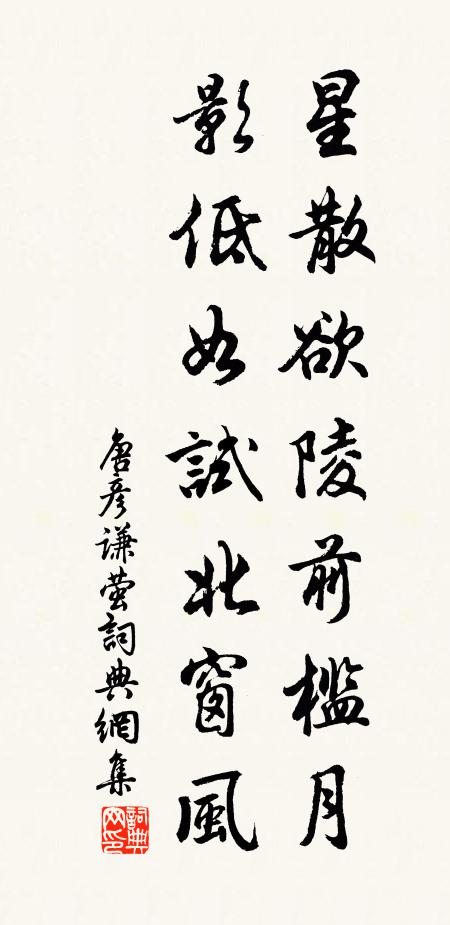 星散欲陵前檻月
影低如試北窗風
唐彥謙螢詞典網集
詞典
网印